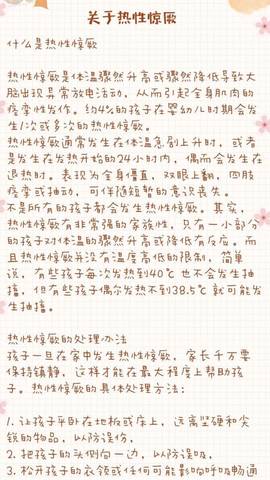 关于热性惊厥
什么是热性惊厥
热性惊厥是体温骤然升高或骤然降低导致大
脑出现异常放电活动，从而引起全身肌肉的
痉挛性发作。约4%的孩子在婴幼儿时期会发
生1次或多次的热性惊厥。
热性惊厥通常发生在体温急剧上升时，或者
是发生在发热开始的24小时内，偶而会发生在
退热时。表现为全身僵直，双眼上翻，四肢
痉挛或抽动，可伴随短暂的意识丧失。
不是所有的孩子都会发生热性惊厥。其实，
热性惊厥有非常强的家族性，只有一小部分
的孩子对体温的骤然升高或降低有反应。而
且热性惊厥并没有温度高低的限制，简单
说，有些孩子每次发热到40℃也不会发生抽
搐，但有些孩子偶尔发热不到38.5℃就可能发
生抽搐。
热性惊厥的处理办法
孩子一旦在家中发生热性惊厥，家长千万要
保持镇静，这样才能在最大程度上帮助孩
子。热性惊厥的具体处理方法：
1. 让孩子平卧在地板或床上，远离坚硬和尖
锐的物品，以防误伤，
2. 把孩子的头侧向一边，以防误吸，
3. 松开孩子的衣领或任何可能影响呼吸畅通